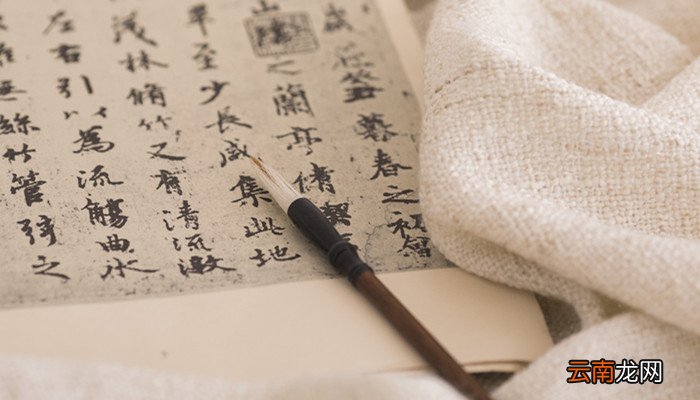 歲在癸丑暮春之初會
山陰之蘭亭脩禊
畢至少長咸集此地
茂林脩竹又有清流激
左右引以為流觴曲水
無絲竹管弦之
云南龙网